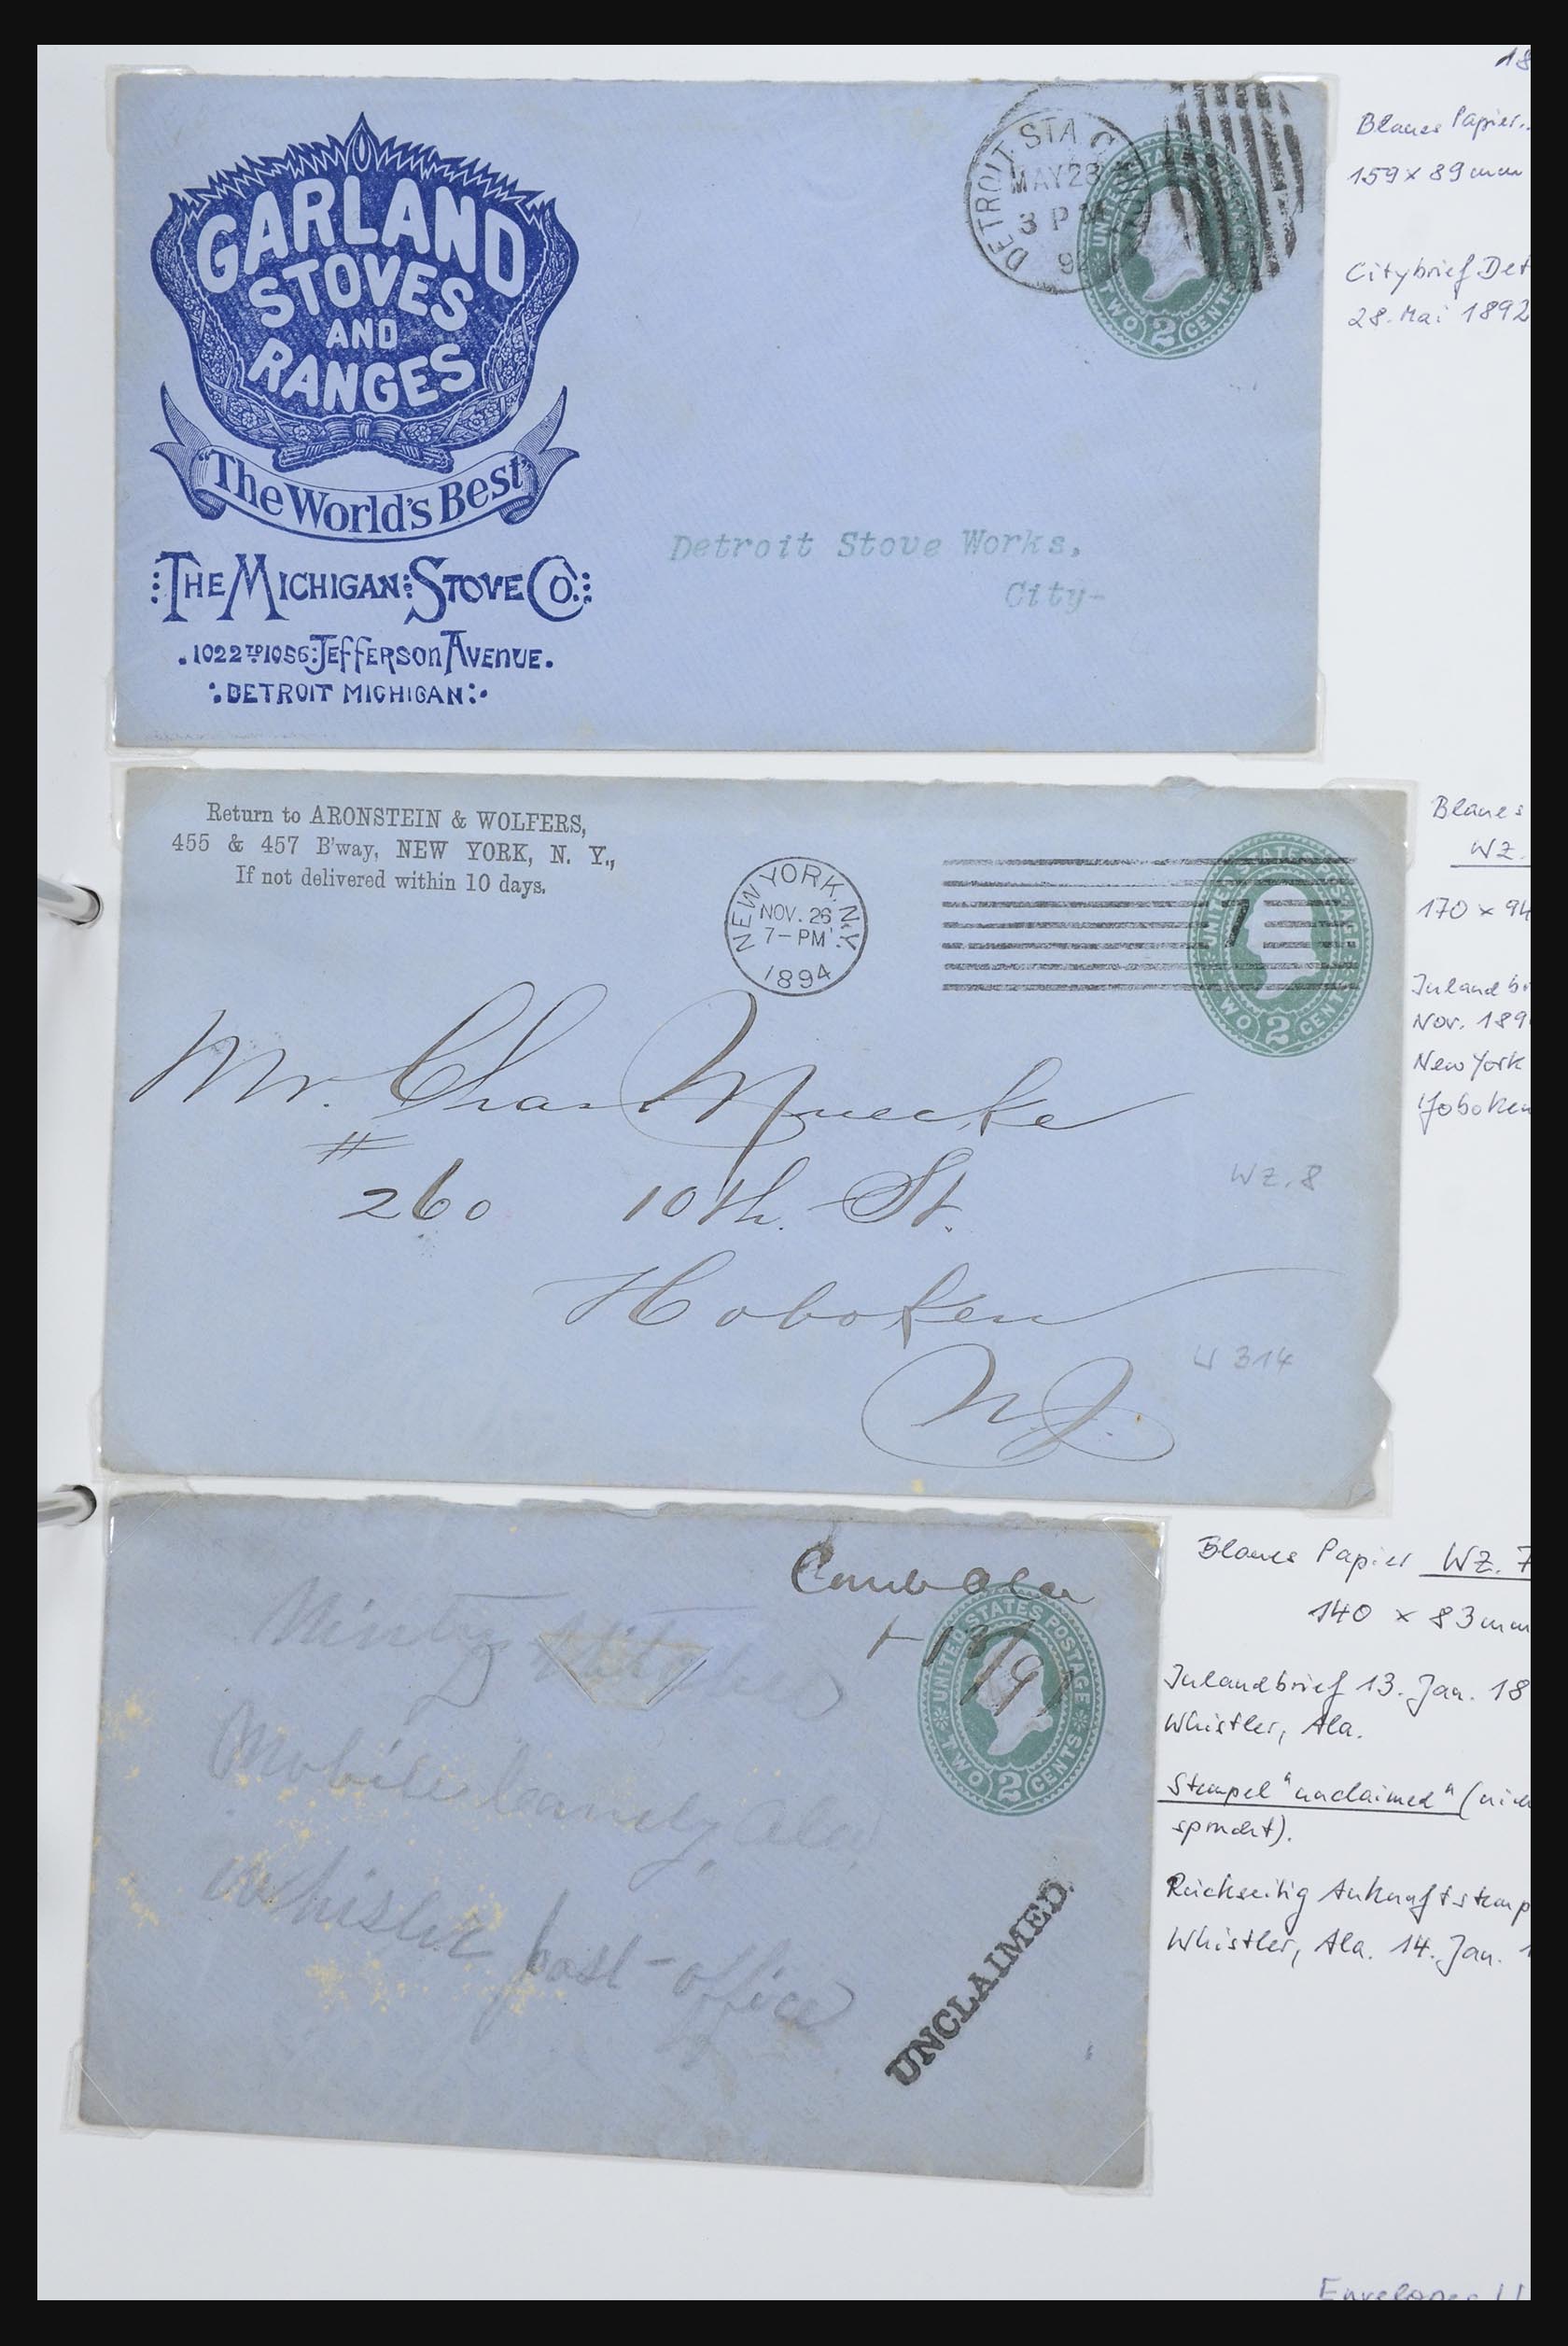 18
GARLAND
STOVES
AND
RANGES
"The World's Best"
THE MICHIGAN STOVE CO.
1022 TO 1056 JEFFERSON AVENUE.
DETROIT MICHIGAN
DETROIT STA C
MAY 28
3 PM
92
UNITED STATES POSTAGE
TWO 2 CENTS
Detroit Stove Works,
City-
Blaues Papier.
159 x 89 mm
Citybrief Det
28. Mai 1892
Return to ARONSTEIN & WOLFERS,
455 & 457 B'way, NEW YORK, N. Y.,
If not delivered within 10 days.
NEW YORK, N.Y.
NOV. 26
7-PM
1894
7
UNITED STATES POSTAGE
TWO 2 CENTS
Mr. Chas Muecke
# 260 10th. St.
Hoboken
N.J.
WZ. 8
U 314
Blaues
WZ.
170 x 94
Inlandb
Nov. 189
New York
Hoboken
UNITED STATES POSTAGE
TWO 2 CENTS
1-13/91
Mobile County Ala
Whisler post-office
UNCLAIMED.
Blaues Papier WZ. 7
140 x 83 mm
Inlandbrief 13. Jan. 18
Whistler, Ala.
Stempel "unclaimed" (
Rückseitig Ankunftstemp
Whistler, Ala. 14. Jan. 1
Envelopes U